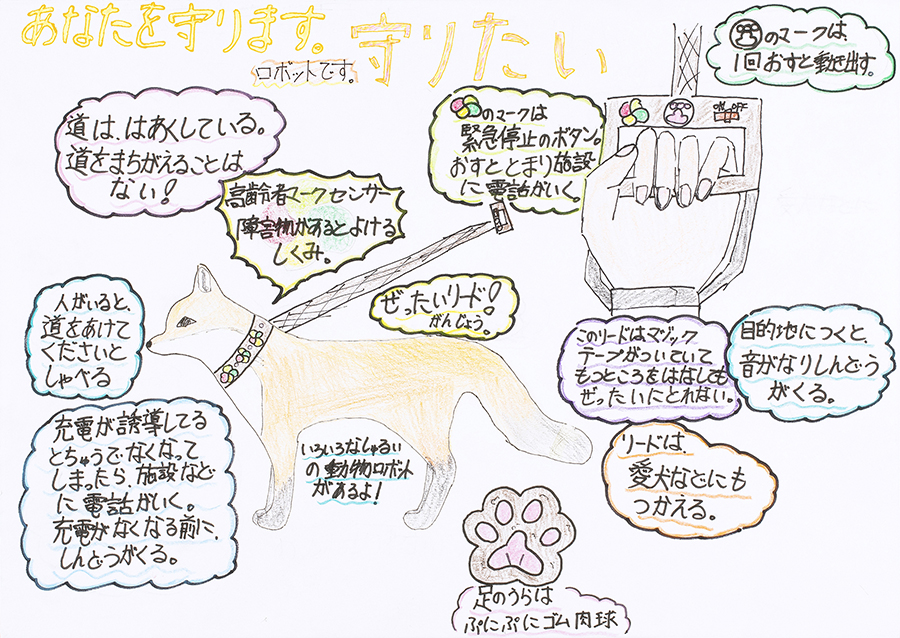 あなたを守ります。守りたい
ロボットです。
のマークは、
1回おすと動き出す。
道は、はあくしている。
道をまちがえることは
ない!
高齢者マークセンサー
障害物があるとよける
しくみ。
のマークは
緊急停止のボタン。
おすととまり施設
に電話がいく。
ON OFF
人がいると、
道をあけて
くださいと
しゃべる
ぜったいリード!
がんじょう。
このリードはマジック
テープがついていて
もっところをはなしても
ぜったいにとれない。
目的地につくと、
音がなりしんどう
がくる。
充電が誘導してる
とちゅうでなくなって
しまったら、施設など
に電話がいく。
充電がなくなる前に、
しんどうがくる。
いろいろなしゅるい
の動物ロボット
があるよ!
リードは、
愛犬などにも
つかえる。
足のうらは
ぷにぷにゴム肉球